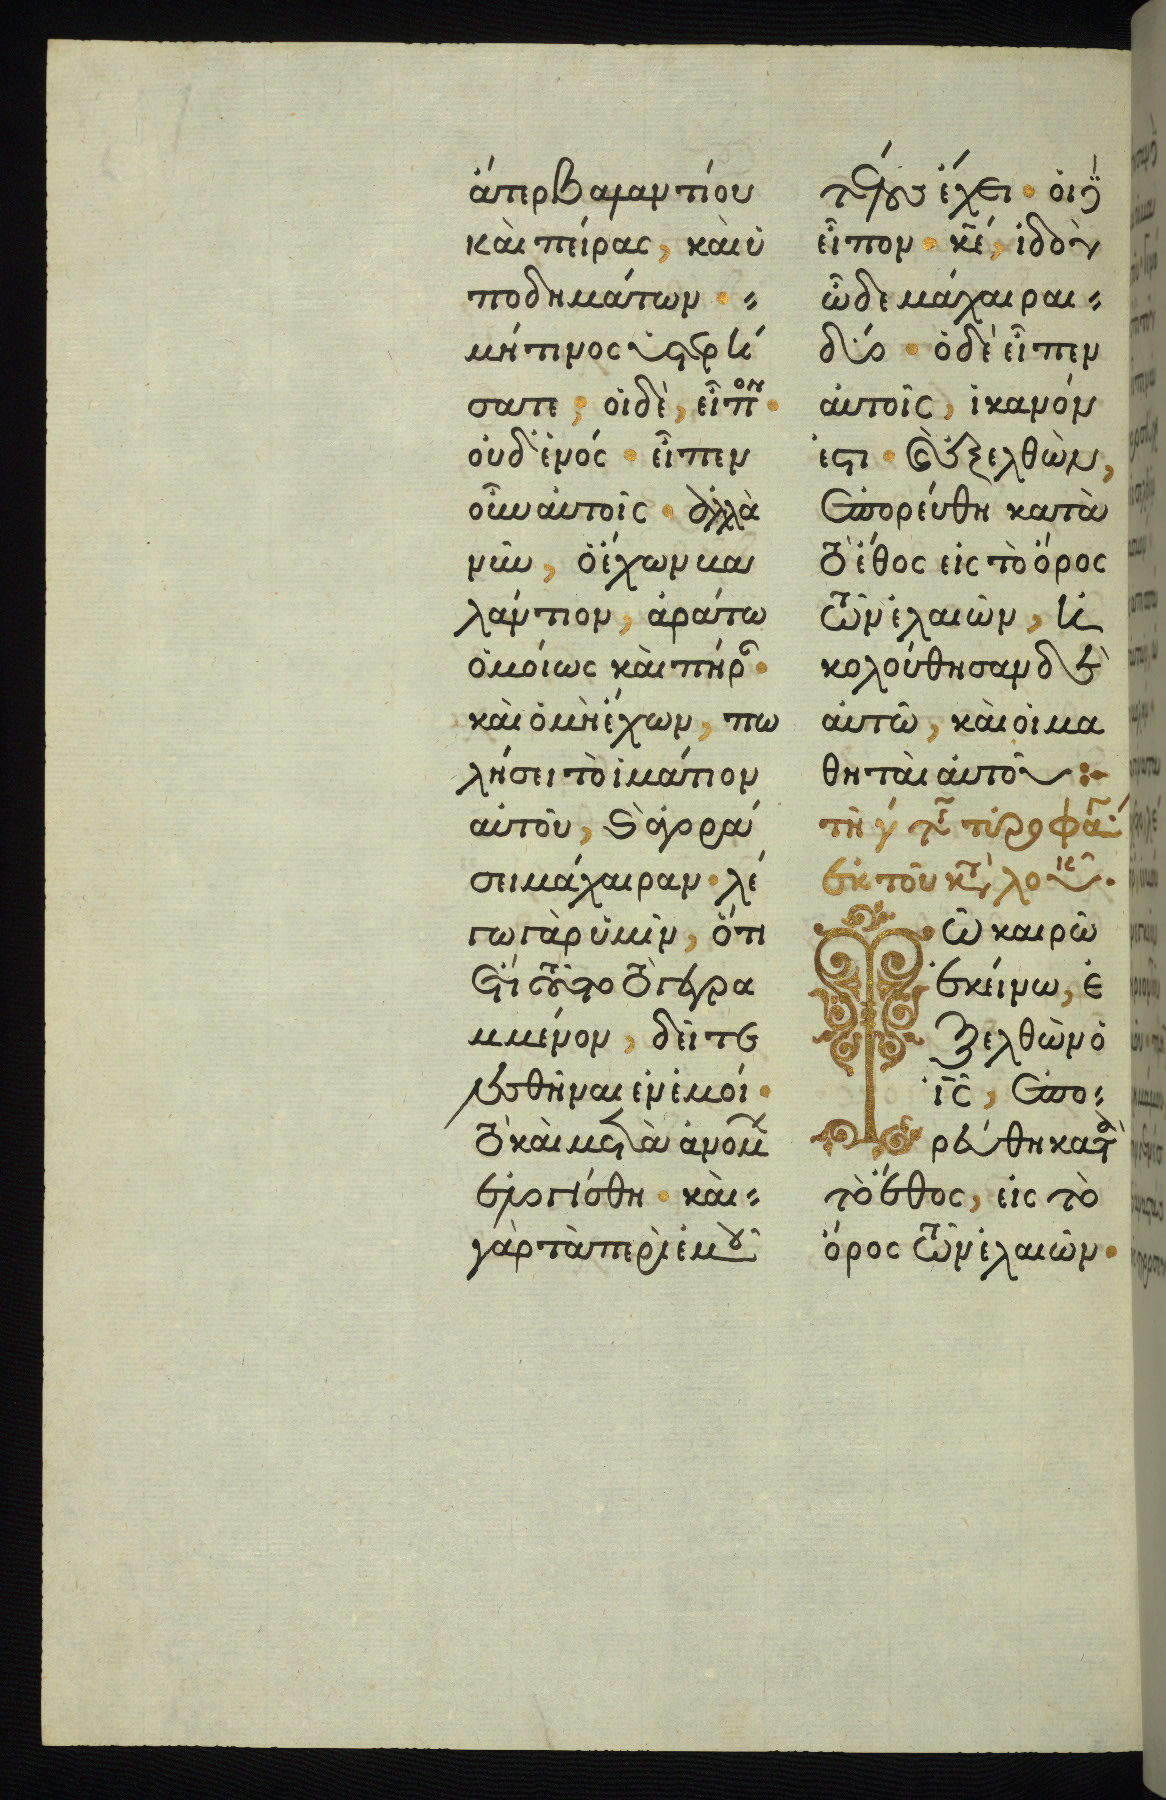 ἄτερ βαλαντίου
καὶ πείρας, καὶ ὑ
ποδημάτων·
μή τινος ὑστερή
σατε; οἱ δὲ, εἶπον·
οὐδενός· εἶπεν
οὖν αὐτοῖς· ἀλλὰ
νῦν, ὁ ἔχων βα
λάντιον, ἀράτω
ὁμοίως καὶ πήραν·
καὶ ὁ μὴ ἔχων, πω
λήσει τὸ ἱμάτιον
αὐτοῦ, καὶ ἀγορά
σει μάχαιραν· λέ
γω γὰρ ὑμῖν, ὅτι
ἔτι τοῦτο τὸ γεγρα
μμένον, δεῖ τε
λεσθῆναι ἐν ἐμοί·
τὸ καὶ μετὰ ἀνόμων
ἐλογίσθη· καὶ
γὰρ τὰ περὶ ἐμοῦ
τέλος ἔχει· οἱ δὲ
εἶπον· κε, ἰδοὺ
ὧδε μάχαιραι
δύο· ὁ δὲ εἶπεν
αὐτοῖς, ἱκανόν
ἐστι· καὶ ἐξελθὼν,
ἐπορεύθη κατὰ
τὸ ἔθος εἰς τὸ ὄρος
τῶν ἐλαιῶν, ἠ
κολούθησαν δὲ
αὐτῷ, καὶ οἱ μα
θηταὶ αὐτοῦ
τῇ γ τῆς τυροφάγου
ἐκ τοῦ κατὰ λουκᾶν.
Τῷ καιρῷ
ἐκείνῳ, ἐ
ξελθὼν ὁ
ις, ἐπο
ρεύθη κατὰ
τὸ ἔθος, εἰς τὸ
ὄρος τῶν ἐλαιῶν·